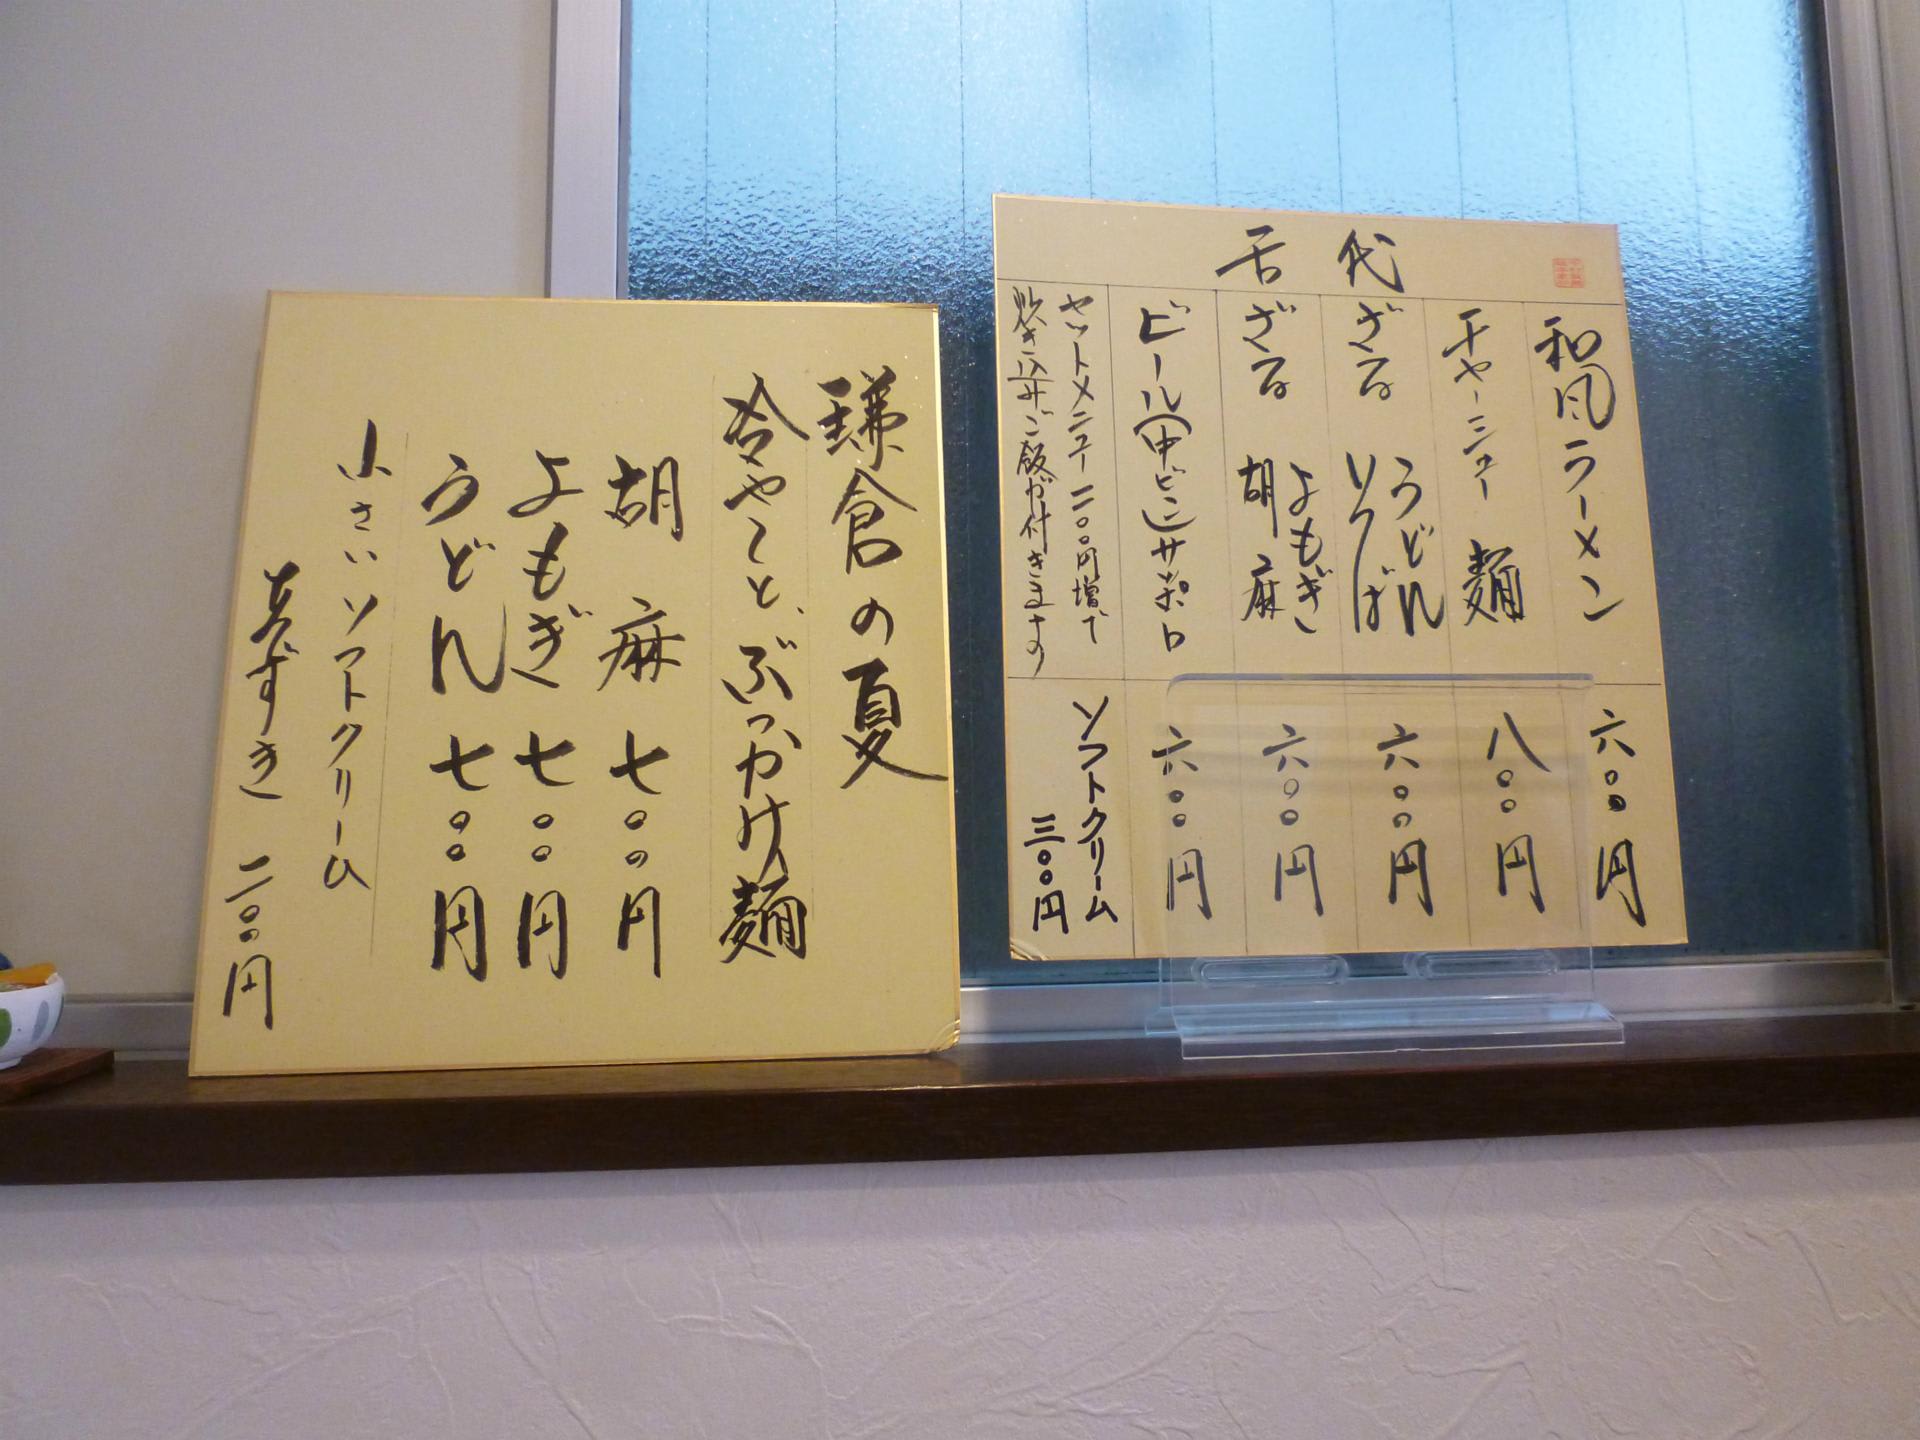 鎌倉の夏
冷やっと、ぶっかけ麺
胡麻 七〇〇円
よもぎ 七〇〇円
うどん 七〇〇円
小さいソフトクリーム
あずき 二〇〇円
舌代
和風ラーメン 六〇〇円
チャーシュー麺 八〇〇円
ざる うどん そば 六〇〇円
ざる よもぎ 胡麻 六〇〇円
ビール(中ビン)サッポロ 六〇〇円
セットメニュー 二〇〇円増して
炊き込みご飯が付きます
ソフトクリーム
三〇〇円